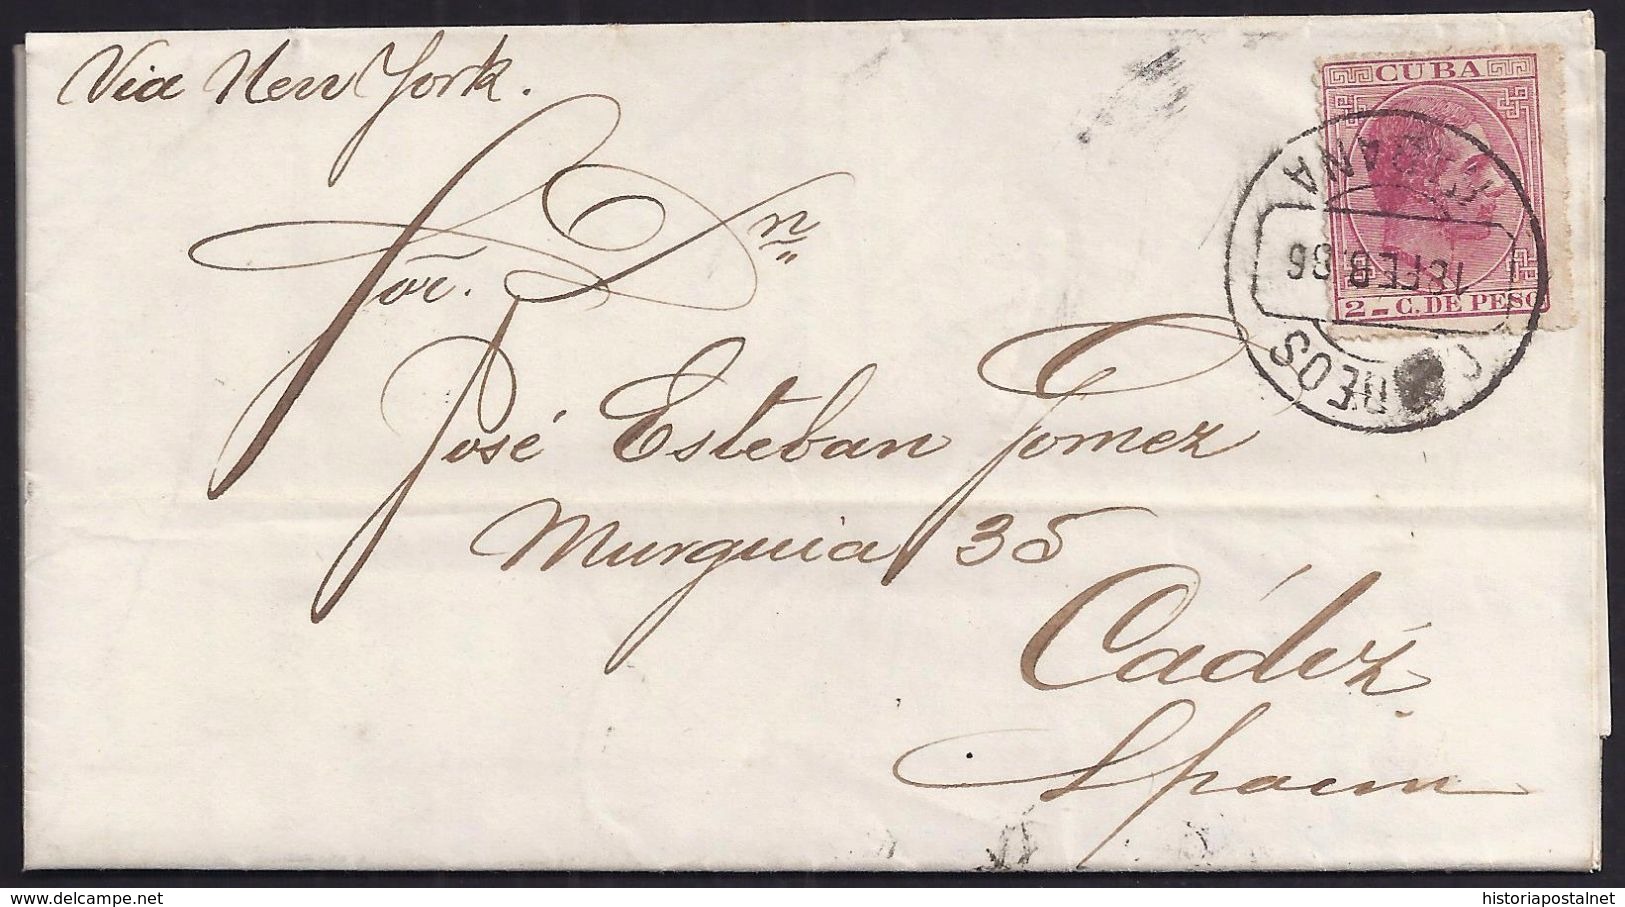 Via New York.
CUBA
Sor. Dn
HABANA
FEB 86
2 - C. DE PESO
CORREOS
José Esteban Gomez
Murguia 35
Cádiz
Spain
delcampe.net
historiapostalnet